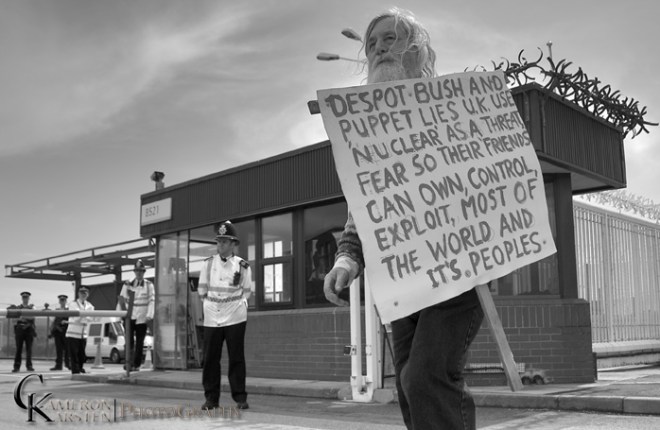 DESPOT·BUSH AND
PUPPET LIES U.K. USE
'NUCLEAR' AS A THREAT
FEAR SO THEIR FRIENDS
CAN OWN, CONTROL,
EXPLOIT, MOST OF
THE WORLD AND
IT'S PEOPLES.
CK CAMERON
KARSTEN | PHOTOGRAPHY